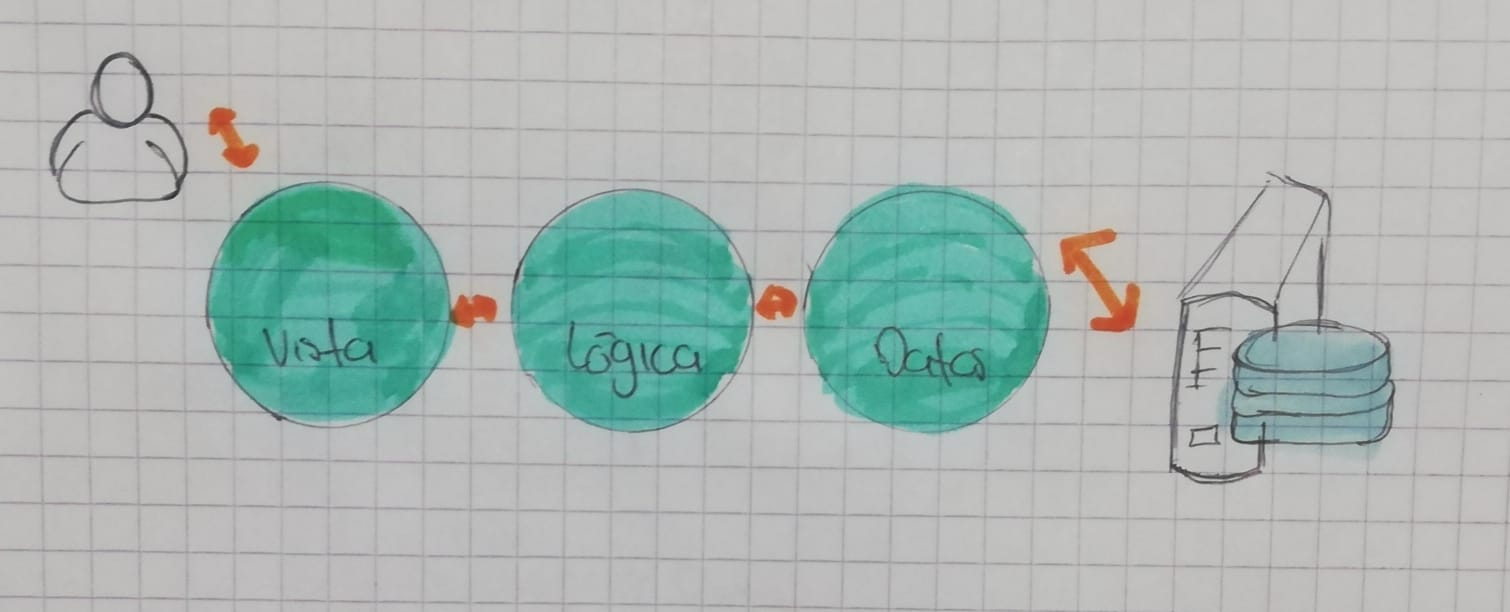 Vista
Lógica
Datos